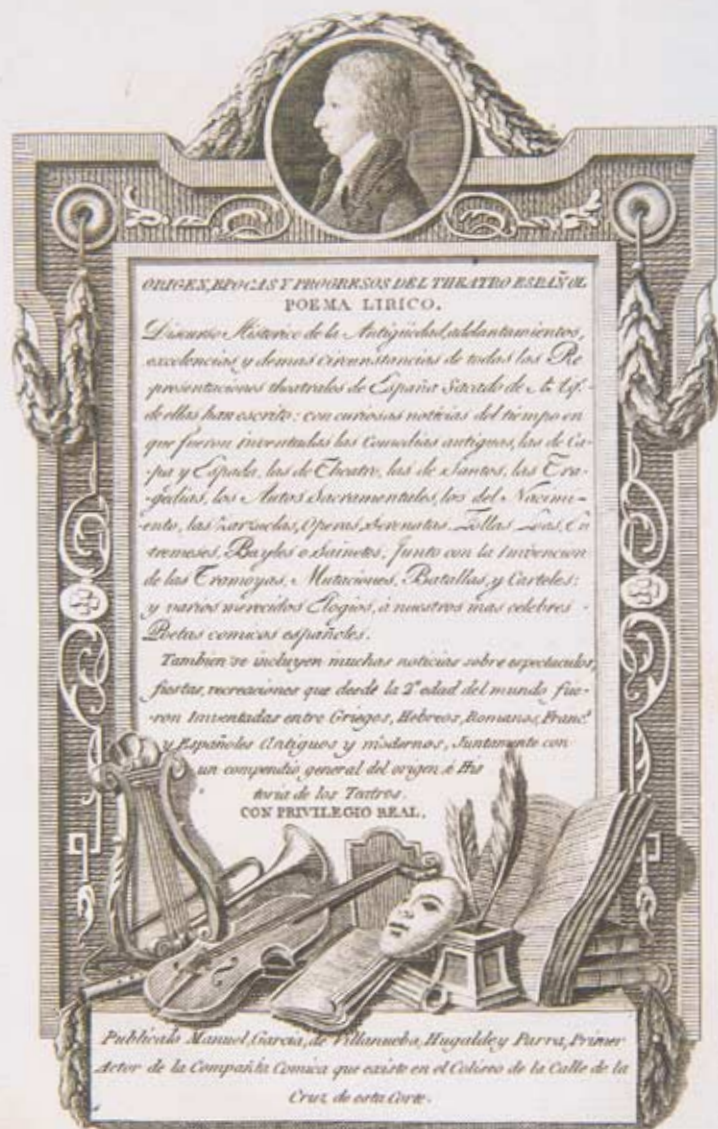 ORIGEN, EPOCAS Y PROGRESOS DEL THEATRO ESPAÑOL
POEMA LIRICO.
Discurso Historico de la Antigüedad, adelantamientos,
excelencias y demas circunstancias de todas las Re
presentaciones theatrales de España Sacado de
de ellas han escrito: con curiosas noticias del tiempo en
que fueron inventadas las Comedias antiguas, las de Ca-
pa y Espada, las de Theatro, las de Santos, las Tra-
gedias, los Autos Sacramentales, los del Nacimi-
ento, las Zarzuelas, Operas, Serenatas, Follas Loas, En
tremeses, Bayles o Sainetes, Junto con la Invencion
de las Tramoyas, Mutaciones, Batallas, y Carteles:
y varios merecidos Elogios, á nuestros mas celebres
Poetas comicos españoles.
Tambien se incluyen muchas noticias sobre espectaculos,
fiestas, recreaciones que desde la 2ª edad del mundo fue-
ron Inventadas entre Griegos, Hebreos, Romanos, Franc.ˢ
y Españoles Antiguos y modernos, Juntamente con
un compendio general del origen é His
toria de los Teatros.
CON PRIVILEGIO REAL.
Publicalo Manuel, Garcia, de Villanueba, Hugalde y Parra, Primer
Actor de la Compañía Comica que existe en el Coliseo de la Calle de la
Cruz de esta Corte.